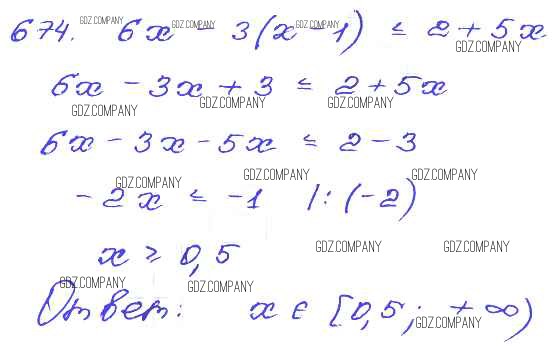 674. 6x - 3(x - 1) ≤ 2 + 5x
GDZ.COMPANY GDZ.COMPANY GDZ.COMPANY GDZ.COMPANY
6x - 3x + 3 ≤ 2 + 5x
GDZ.COMPANY GDZ.COMPANY GDZ.COMPANY
6x - 3x - 5x ≤ 2 - 3
GDZ.COMPANY GDZ.COMPANY GDZ.COMPANY
- 2x ≤ -1 |: (-2)
x ≥ 0,5
GDZ.COMPANY GDZ.COMPANY
GDZ.COMPANY GDZ.COMPANY
Ответ: x ∈ [0,5; +∞)
GDZ.COMPANY